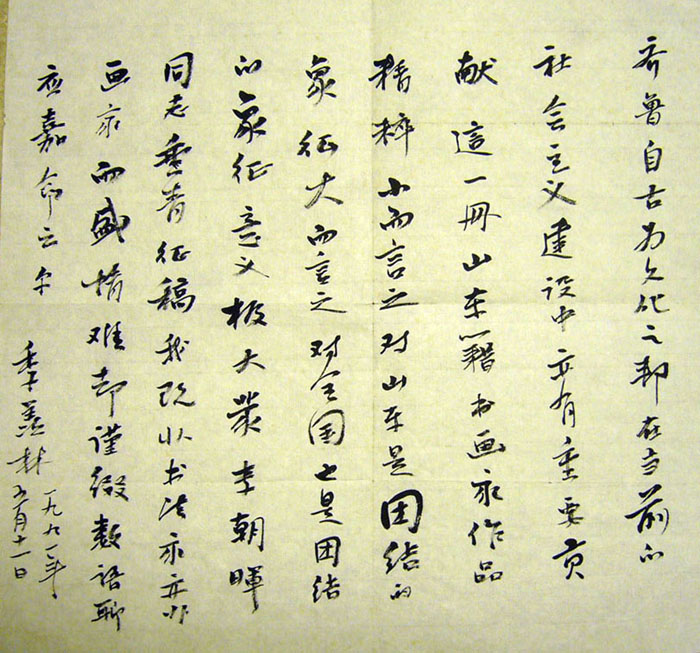 齐鲁自古为文化之邦在当前的
社会主义建设中亦有重要贡
献這一冊山东籍书画家作品
精粹小而言之对山东是团结的
象征大而言之对全国也是团结
的象征意义极大蒙李朝暉
同志垂青征稿我既非书法家亦非
画家而盛情难却谨缀数语聊
应嘉命云尔
季羡林一九九一年
五月十一日